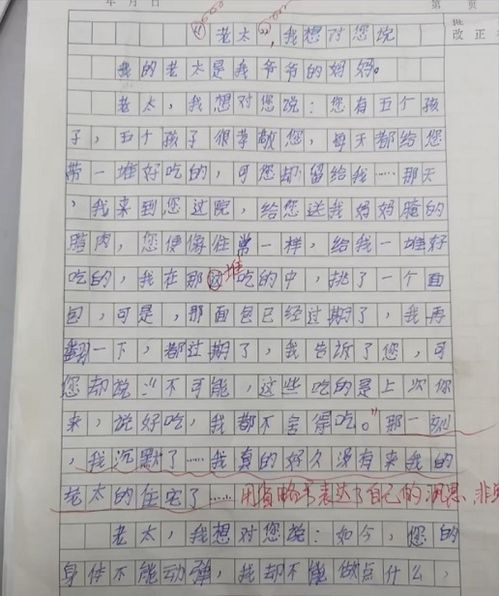 年 月 日 第 页
“老太”，我想对您说
批
改正
我的老太是我爷爷的妈妈。
老太，我想对您说：您有五个孩
子，五个孩子很孝敬您，每天都给您
带一堆好吃的，可您却留给我……那天
，我来到您这院，给您送我妈妈腌的
腊肉，您便像往常一样，给我一堆好
吃的，我在那堆吃的中，挑了一个面
包，可是，那面包已经过期了，我再
翻一下，都过期了，我告诉了您，可
您却说：“不可能，这些吃的是上次你
来，说好吃，我都不舍得吃。”那一刻
，我沉默了……我真的好久没有来我的
老太的住宅了……用省略号表达了自己的沉思，非
老太，我想对您说：如今，您的
身体不能动弹，我却不能做点什么，